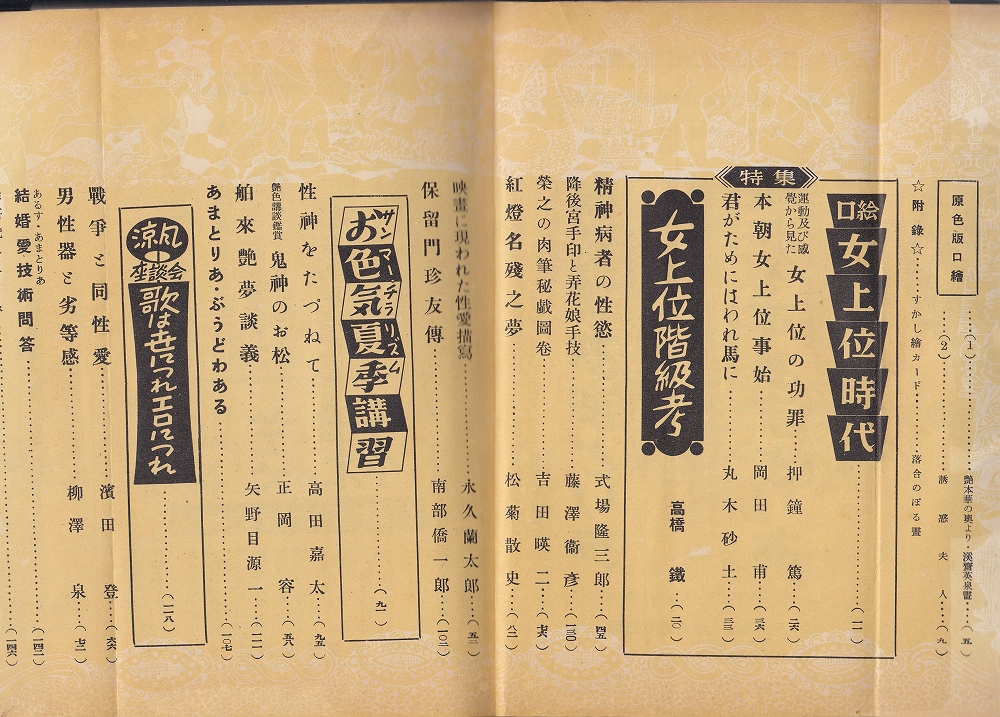 原色版口繪
……(1)……艶本華の奥より・溪齋英泉畫……(五)
……(2)……誘惑夫人……(九)
☆附錄☆……すかし繪カード……落合のぼる畫
特集
口絵 女上位時代……(一一)
運動及び感覺から見た 女上位の功罪……押鐘篤……(二六)
本朝女上位事始……岡田甫……(三六)
君がためにはわれ馬に……丸木砂土……(三三)
女上位階級考 高橋鐵……(二〇)
精神病者の性慾……式場隆三郎……(四五)
降後宮手印と弄花娘手技……藤澤衞彦……(一三〇)
榮之の肉筆秘戲圖卷……吉田暎二……(一七六)
紅燈名殘之夢……松菊散史……(二)
映畫に現われた性愛描寫……永久蘭太郎……(五二)
保留門珍友傳……南部僑一郎……(一〇三)
サンマーチフリズム
お色気夏季講習……(九一)
性神をたづねて……高田嘉太……(九五)
艶色講談鑑賞 鬼神のお松……正岡容……(五八)
舶來艶夢談義……矢野目源一……(一一一)
あまとりあ・ぶうどわある……(一〇七)
涼風座談会 歌は世につれエロにつれ……(一一八)
戰爭と同性愛……濱田登……(六六)
男性器と劣等感……柳澤泉……(七二)
あるす・あまとりあ
結婚愛技術問答……(一四二)
……(一四六)